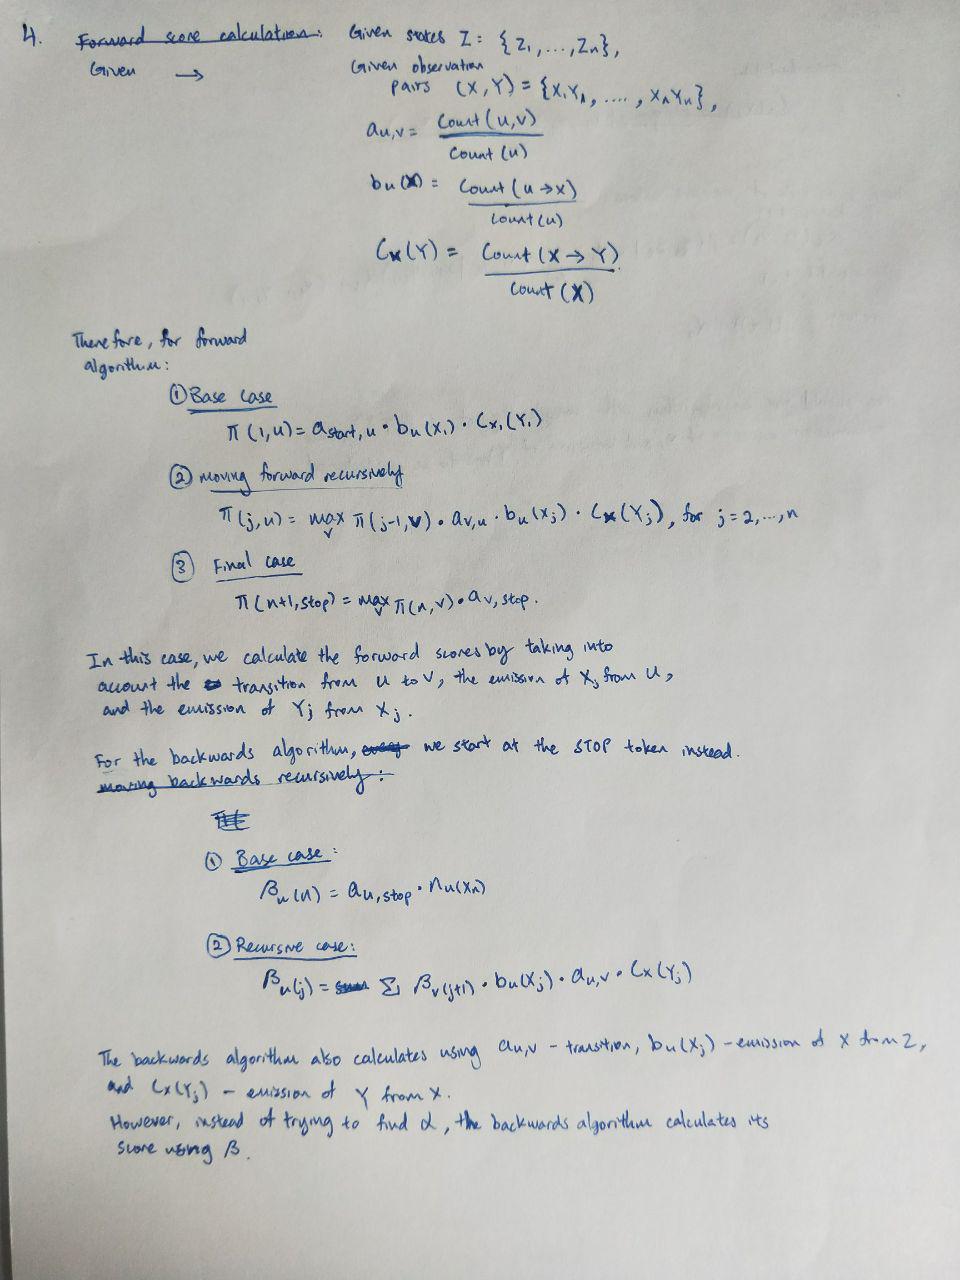 4. Forward score calculation: Given states Z = {Z1, ..., Zn},
Given → Given observation
pairs (X, Y) = {X1Y1, ...., XnYn},
au,v = Count (u,v) / Count (u)
bu(X) = Count (u → x) / Count (u)
Cx(Y) = Count (X → Y) / Count (X)
Therefore, for forward
algorithm:
① Base case
π (1,u) = astart,u · bu (x1) · Cx1(Y1)
② moving forward recursively
π (j,u) = max v π (j-1,v) · av,u · bu(xj) · Cx(Yj), for j = 2,...,n
③ Final case
π (n+1, stop) = max v π (n,v) · av,stop.
In this case, we calculate the forward scores by taking into
account the transition from u to v, the emission of Xj from u,
and the emission of Yj from Xj.
For the backwards algorithm, we start at the STOP token instead.
moving backwards recursively:
① Base case:
βu (n) = au,stop · nu(Xn)
② Recursive case:
βu(j) = Σ βv(j+1) · bu(Xj) · au,v · Cx(Yj)
The backwards algorithm also calculates using au,v - transition, bu(Xj) - emission of X from Z,
and Cx(Yj) - emission of Y from X.
However, instead of trying to find α, the backwards algorithm calculates its
score using β.